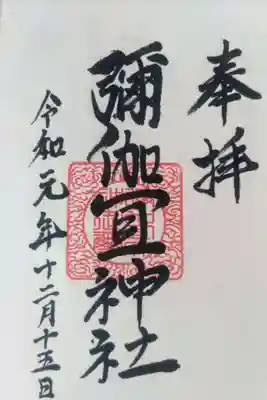 奉拝
彌伽宜神社
令和元年十二月十五日